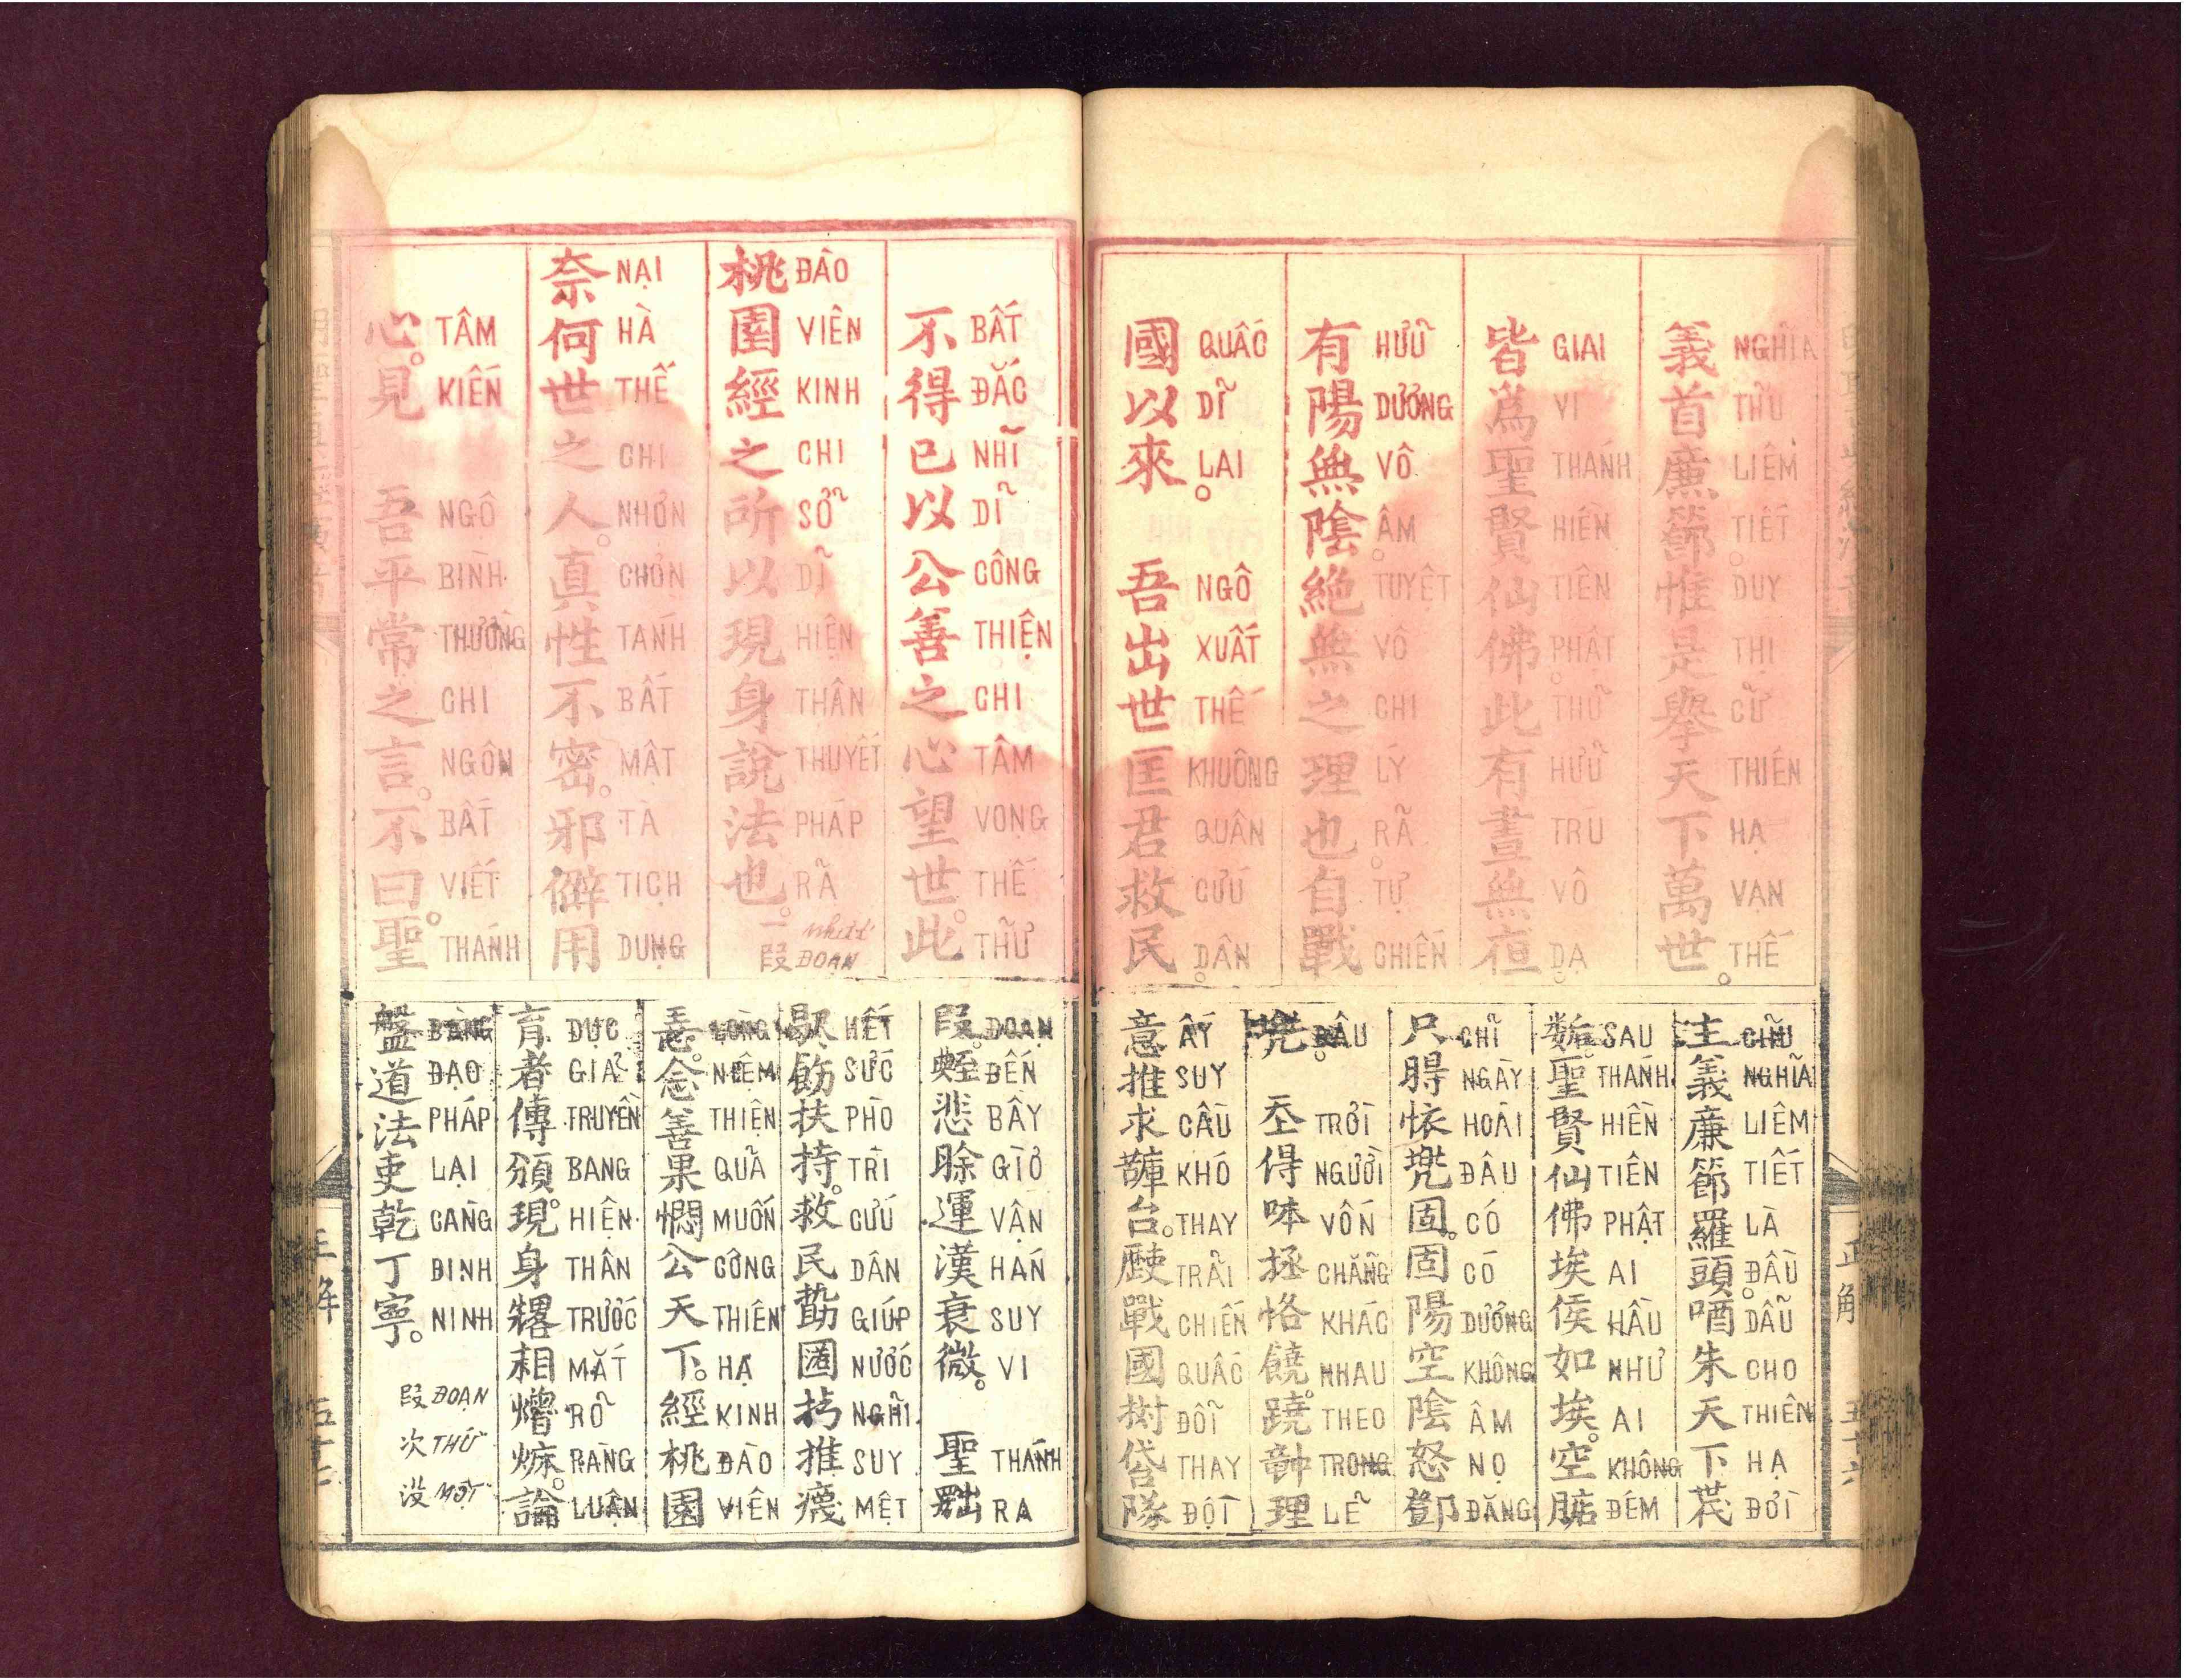 義首廉節。惟是舉天下萬世。
NGHĨA THỦ LIÊM TIẾT DUY THỊ CỬ THIÊN HẠ VẠN THẾ
皆爲聖賢仙佛。此有晝無夜。
GIAI VI THÁNH HIỀN TIÊN PHẬT THỬ HỮU TRÚ VÔ DẠ
有陽無陰。絕無之理也。自戰
HỮU DƯƠNG VÔ ÂM TUYỆT VÔ CHI LÝ RÃ TỰ CHIẾN
國以來。吾出世匡君救民。
QUẤC DĨ LAI NGÔ XUẤT THẾ KHUÔNG QUÂN CỨU DÂN
主義廉節羅頭。唒朱天下𠁀
CHỮ NGHĨA LIÊM TIẾT LÀ ĐẦU DẪU CHO THIÊN HẠ ĐỜI
𡢐。聖賢仙佛埃侯如埃。空𣎀
SAU THÁNH HIỀN TIÊN PHẬT AI HẦU NHƯ AI KHÔNG ĐÊM
只𣈜怀兠固。固陽空陰怒鄧
CHỈ NGÀY HOÀI ĐÂU CÓ CÓ DƯƠNG KHÔNG ÂM NỌ ĐẶNG
兠。𡗶得拯恪饒。蹺𥪝理
ĐÂU TRỜI NGƯỜI VỐN CHẲNG KHÁC NHAU THEO TRONG LẼ
意推求台。戰國隊
ẤY SUY CẦU KHÓ THAY TRẢI CHIẾN QUẤC ĐỔI THAY ĐỘI
正解
五十六
不得已以公善之心望世。此
BẤT ĐẮC NHĨ DĨ CÔNG THIỆN CHI TÂM VỌNG THẾ THỬ
桃園經之所以現身說法也。一段
ĐÀO VIÊN KINH CHI SỞ DĨ HIỆN THÂN THUYẾT PHÁP RÃ NHỨT ĐOẠN
奈何世之人。真性不密。邪僻用
NẠI HÀ THẾ CHI NHƠN CHƠN TÁNH BẤT MẬT TÀ TỊCH DỤNG
心。見 吾平常之言。不曰。聖
TÂM KIẾN NGÔ BÌNH THƯỜNG CHI NGÔN BẤT VIẾT THÁNH
段。悲運漢衰微。聖
ĐOẠN ĐẾN BÂY GIỜ VẬN HÁN SUY VI THÁNH RA
歇飭扶持。救民推
HẾT SỨC PHÒ TRÌ CỨU DÂN GIÚP NƯỚC NGHĨ SUY MỆT
念善果公天下。經桃園
LÒNG NIỆM THIỆN QUẢ MUỐN CÔNG THIÊN HẠ KINH ĐÀO VIÊN
育者傳頒。現身論
DỤC GIẢ TRUYỀN BANG HIỆN THÂN TRƯỚC MẮT RÕ RÀNG LUẬN
盤道法吏乾丁寧。
BÀNG ĐẠO PHÁP LẠI CÀNG ĐINH NINH
段次没
ĐOẠN THỨ MỘT